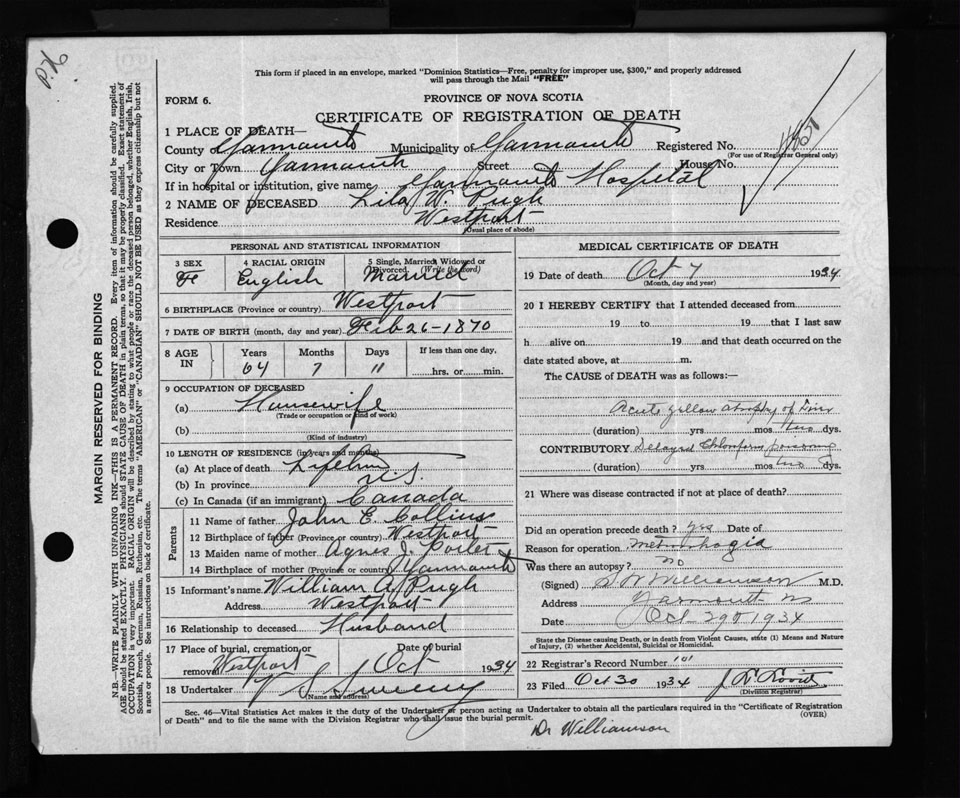 This form if placed in an envelope, marked "Dominion Statistics—Free, penalty for improper use, $300," and properly addressed
will pass through the Mail "FREE"
FORM 6.
PROVINCE OF NOVA SCOTIA
CERTIFICATE OF REGISTRATION OF DEATH
1 PLACE OF DEATH—
County Yarmouth Municipality of Yarmouth Registered No.
(For use of Registrar General only)
City or Town Yarmouth Street House No.
If in hospital or institution, give name Yarmouth Hospital
2 NAME OF DECEASED Lila W. Pugh
Residence Westport
(Usual place of abode)
MARGIN RESERVED FOR BINDING
N.B.—WRITE PLAINLY WITH UNFADING INK—THIS IS A PERMANENT RECORD. Every item of information should be carefully supplied.
AGE should be stated EXACTLY. PHYSICIANS should STATE CAUSE OF DEATH in plain terms, so that it may be properly classified. Exact statement of
OCCUPATION is very important. RACIAL ORIGIN will be described by stating to what people or race the deceased person belonged, whether English, Irish,
Scottish, French, German, Russian, Ruthenian, etc. The terms "AMERICAN" or "CANADIAN" SHOULD NOT BE USED as they express citizenship but not
a race or people. See instructions on back of certificate.
PERSONAL AND STATISTICAL INFORMATION
3 SEX
F
4 RACIAL ORIGIN
English
5 Single, Married, Widowed or
Divorced (Write the word)
Married
6 BIRTHPLACE (Province or country) Westport
7 DATE OF BIRTH (month, day and year) Feb 26-1870
8 AGE IN
Years Months Days If less than one day,
64 7 11 hrs. or min.
9 OCCUPATION OF DECEASED
(a) Housewife
(Trade or occupation or kind of work)
(b)
(Kind of industry)
10 LENGTH OF RESIDENCE (in years and months)
(a) At place of death Lifetime
(b) In province N.S.
(c) In Canada (if an immigrant) Canada
Parents
11 Name of father John E Collins
12 Birthplace of father (Province or country) Westport
13 Maiden name of mother Agnes J. Porter
14 Birthplace of mother (Province or country) Yarmouth
15 Informant's name William A. Pugh
Address Westport
16 Relationship to deceased Husband
17 Place of burial, cremation or Date of burial
removal Westport Oct 1934
18 Undertaker V S Sweeny
(Name and address)
MEDICAL CERTIFICATE OF DEATH
19 Date of death Oct 7 1934
(Month, day and year)
20 I HEREBY CERTIFY that I attended deceased from
19 to 19 that I last saw
h alive on 19 and that death occurred on the
date stated above, at m.
The CAUSE of DEATH was as follows:—
Acute yellow atrophy of liver
(duration) yrs mos two dys.
CONTRIBUTORY Delayed Chloroform poisoning
(duration) yrs mos two dys.
21 Where was disease contracted if not at place of death?
Did an operation precede death? yes Date of
Reason for operation
Was there an autopsy? no
(Signed) Williamson M.D.
Address Yarmouth NS
Date Oct 29th 1934
State the Disease causing Death, or in death from Violent Causes, state (1) Means and Nature
of Injury, (2) whether Accidental, Suicidal or Homicidal.
22 Registrar's Record Number 101
23 Filed Oct 30 1934
(Division Registrar)
Sec. 46—Vital Statistics Act makes it the duty of the Undertaker or person acting as Undertaker to obtain all the particulars required in the "Certificate of Registration
of Death" and to file the same with the Division Registrar who shall issue the burial permit. (OVER)
Dr Williamson